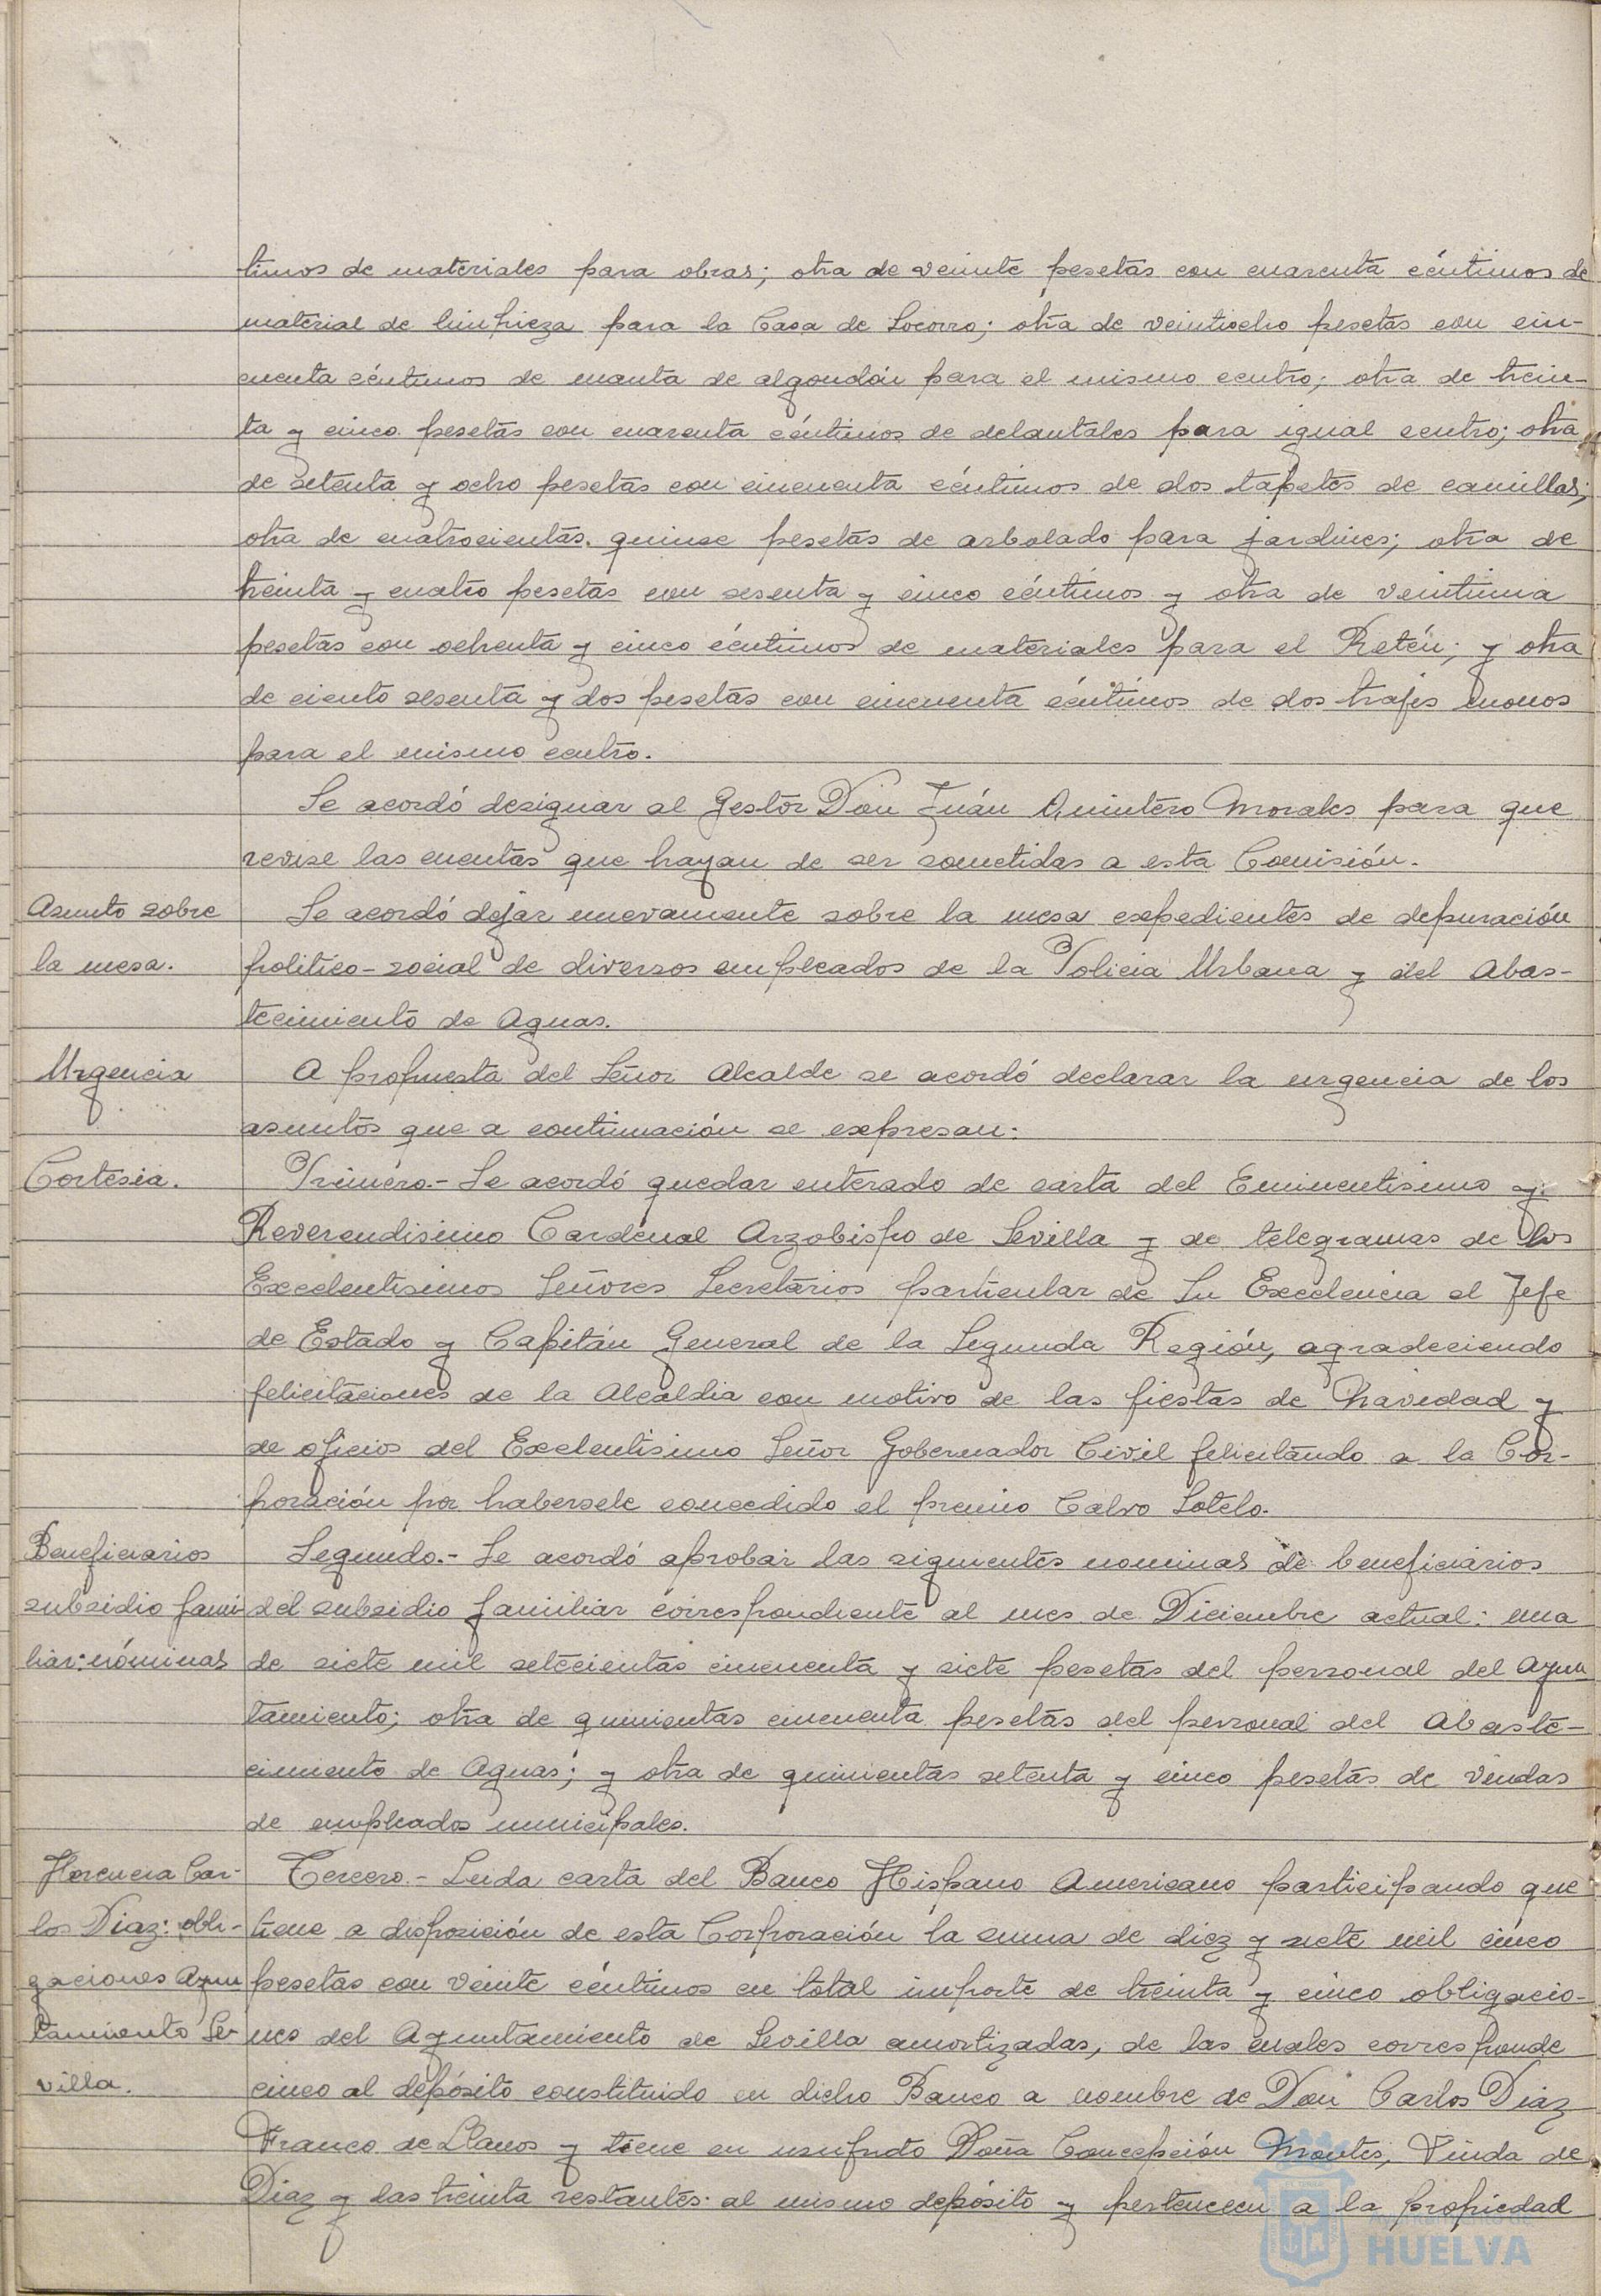 timos de materiales para obras; otra de veinte pesetas con cuarenta céntimos de
material de limpieza para la Casa de Socorro; otra de veintiocho pesetas con cin-
cuenta céntimos de manta de algondón para el mismo centro; otra de trein-
ta y cinco pesetas con cuarenta céntimos de delantales para igual centro; otra
de setenta y ocho pesetas con cincuenta céntimos de dos tapetes de camillas;
otra de cuatrocientas quince pesetas de arbolado para jardines; otra de
treinta y cuatro pesetas con sesenta y cinco céntimos y otra de veintiuna
pesetas con ochenta y cinco céntimos de materiales para el Retén; y otra
de ciento sesenta y dos pesetas con cincuenta céntimos de dos trajes monos
para el mismo centro.
Se acordó designar al Gestor Don Juán Quintero Morales para que
revise las cuentas que hayan de ser sometidas a esta Comisión.
Asunto sobre
la mesa.
Se acordó dejar nuevamente sobre la mesa expedientes de depuración
politico-social de diversos empleados de la Policia Urbana y del Abas-
tecimiento de Aguas.
Urgencia
A propuesta del Señor Alcalde se acordó declarar la urgencia de los
asuntos que a continuación se expresan:
Cortesia.
Primero.- Se acordó quedar enterado de carta del Eminentisimo y
Reverendisimo Cardenal Arzobispo de Sevilla y de telegramas de los
Excelentisimos Señores Secretarios particular de Su Excelencia el Jefe
de Estado y Capitán General de la Segunda Región, agradeciendo
felicitaciones de la Alcaldia con motivo de las fiestas de Navidad y
de oficios del Excelentisimo Señor Gobernador Civil felicitando a la Cor-
poración por habersele concedido el premio Calvo Sotelo.
Beneficiarios
subsidio fami
liar: nóminas
Segundo.- Se acordó aprobar las siguientes nominas de beneficiarios
del subsidio familiar correspondiente al mes de Diciembre actual: una
de siete mil setecientas cincuenta y siete pesetas del personal del Ayun
tamiento; otra de quinientas cincuenta pesetas del personal del Abaste-
cimiento de Aguas; y otra de quinientas setenta y cinco pesetas de viudas
de empleados municipales.
Herencia Car-
los Diaz: obli-
gaciones Ayun
tamiento Se-
villa.
Tercero.- Leida carta del Banco Hispano Americano participando que
tiene a disposición de esta Corporación la suma de diez y siete mil cinco
pesetas con veinte céntimos en total importe de treinta y cinco obligacio-
nes del Ayuntamiento de Sevilla amortizadas, de las cuales corresponde
cinco al depósito constituido en dicho Banco a nombre de Don Carlos Diaz
Franco de Llanos y tiene en usufruto Doña Concepción Montes, Viuda de
Diaz y las treinta restantes al mismo depósito y pertenecen a la propiedad
HUELVA